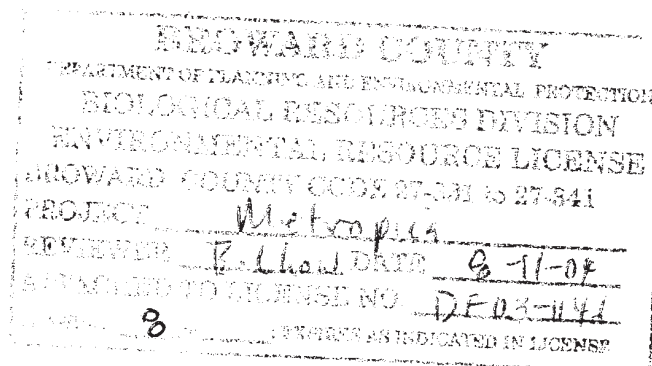 BROWARD COUNTY
DEPARTMENT OF PLANNING AND ENVIRONMENTAL PROTECTION
BIOLOGICAL RESOURCES DIVISION
ENVIRONMENTAL RESOURCE LICENSE
BROWARD COUNTY CODE 27-331 to 27-341
PROJECT Metropica
REVIEWER DATE 8-11-04
ATTACHED TO LICENSE NO. DF03-1141
8 EXPIRES AS INDICATED IN LICENSE